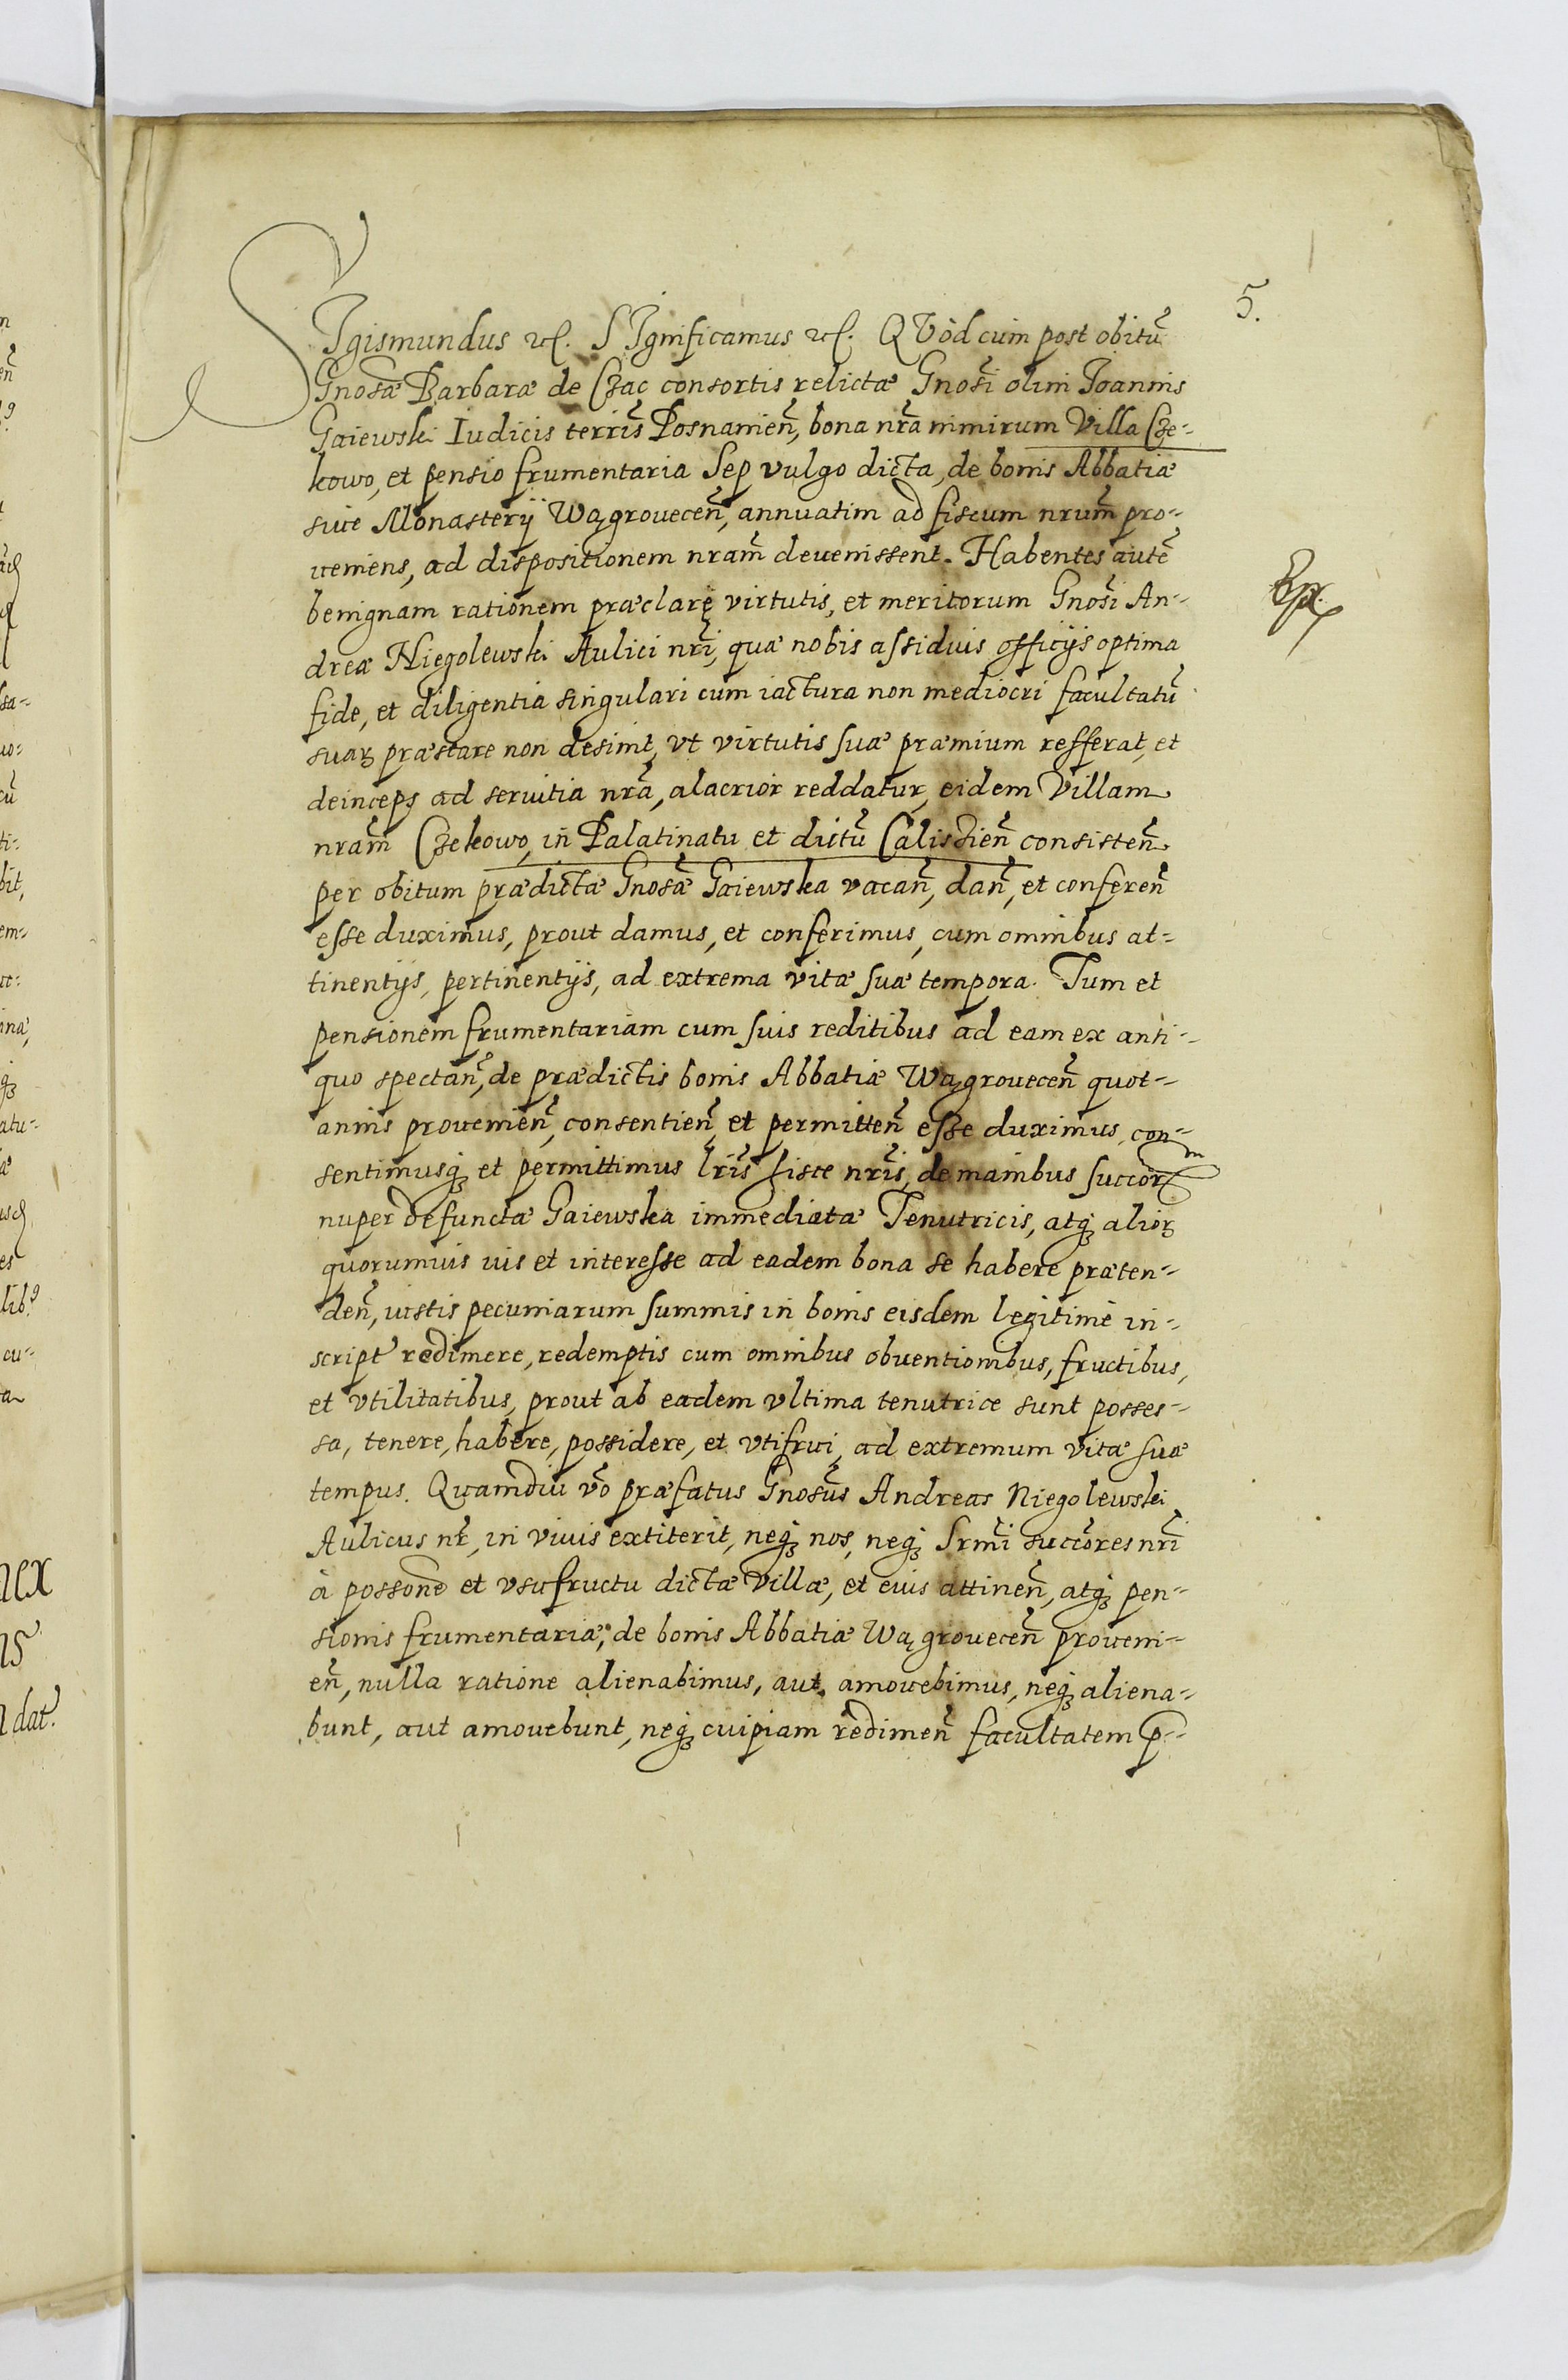 5.
SIgismundus etc. SIgnificamus etc. QVòd cùm post obitũ
Gnosæ Barbaræ de Czac consortis relictæ Gnosi olim Ioannis
Gaiewski Iudicis terris Posnanien̄, bona nr̃a nimirum Villa Cze-
kowo, et pensio frumentaria Sep vulgo dicta, de bonis Abbatiæ
siue Monasterij Wągrouecen̄, annuatim ad fiscum nrum̃ pro-
ueniens, ad dispositionem nram̃ deuenissent. Habentes autẽ
benignam rationem præclarę virtutis, et meritorum Gnosi An-
dreæ Niegolewski Aulici nri̇̃, quæ nobis assiduis officijs optima
fide, et diligentia singulari cum iactura non mediocri facultatũ
suaꝝ præstare non desinit, vt virtutis suæ præmium refferat, et
deinceps ad seruitia nrã, alacrior reddatur, eidem Villam
nram̃ Czekowo, in Palatinatu et dictũ Calisien̄ consisten̄
per obitum prædictæ Gnosæ Gaiewska vacan̄, dan̄, et conferen̄
esse duximus, prout damus, et conferimus, cum omnibus at-
tinentijs, pertinentijs, ad extrema vitæ suæ tempora. Tum et
pensionem frumentariam cum suis reditibus ad eam ex anti-
quo spectan̄, de prædictis bonis Abbatiæ Wągrouecen̄ quot-
annis prouenien̄, consentien̄ et permitten̄ esse duximus, con-
sentimusqȝ et permittimus lris̃ hisce nris̃, de manibus succorꝝ
nuper defunctæ Gaiewska immediatæ Tenutricis, atqȝ alioꝝ
quorumuis ius et interesse ad eadem bona se habere præten-
den̄, iustis pecuniarum summis in bonis eisdem legitimè in-
script̃ redimere, redemptis cum omnibus obuentionibus, fructibus,
et vtilitatibus, prout ab eadem vltima tenutrice sunt posses-
sa, tenere, habere, possidere, et vtifrui, ad extremum vitæ suæ
tempus. Quamdiu võ præfatus Gnosus̃ Andreas Niegolewski
Aulicus nr̃, in viuis extiterit, neqȝ nos, neqȝ Srmi̇̃ succores̃ nri̇̃
à possonẽ et vsufructu dictæ Villæ, et eius attinen̄, atqȝ pen-
sionis frumentariæ, de bonis Abbatiæ Wągrouecen̄ proueni-
en̄, nulla ratione alienabimus, aut amouebimus, neqȝ aliena-
bunt, aut amouebunt, neqȝ cuipiam redimen̄ facultatem ꝑ-